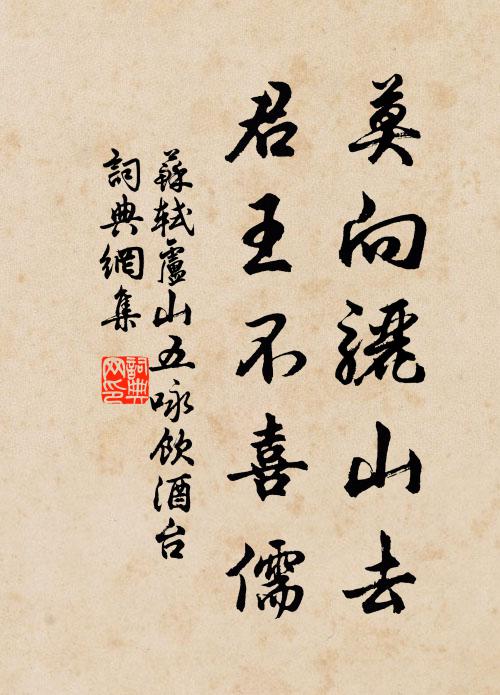 莫向驪山去
君王不喜儒
蘇軾廬山五咏飲酒台
詞典網集
詞典网印